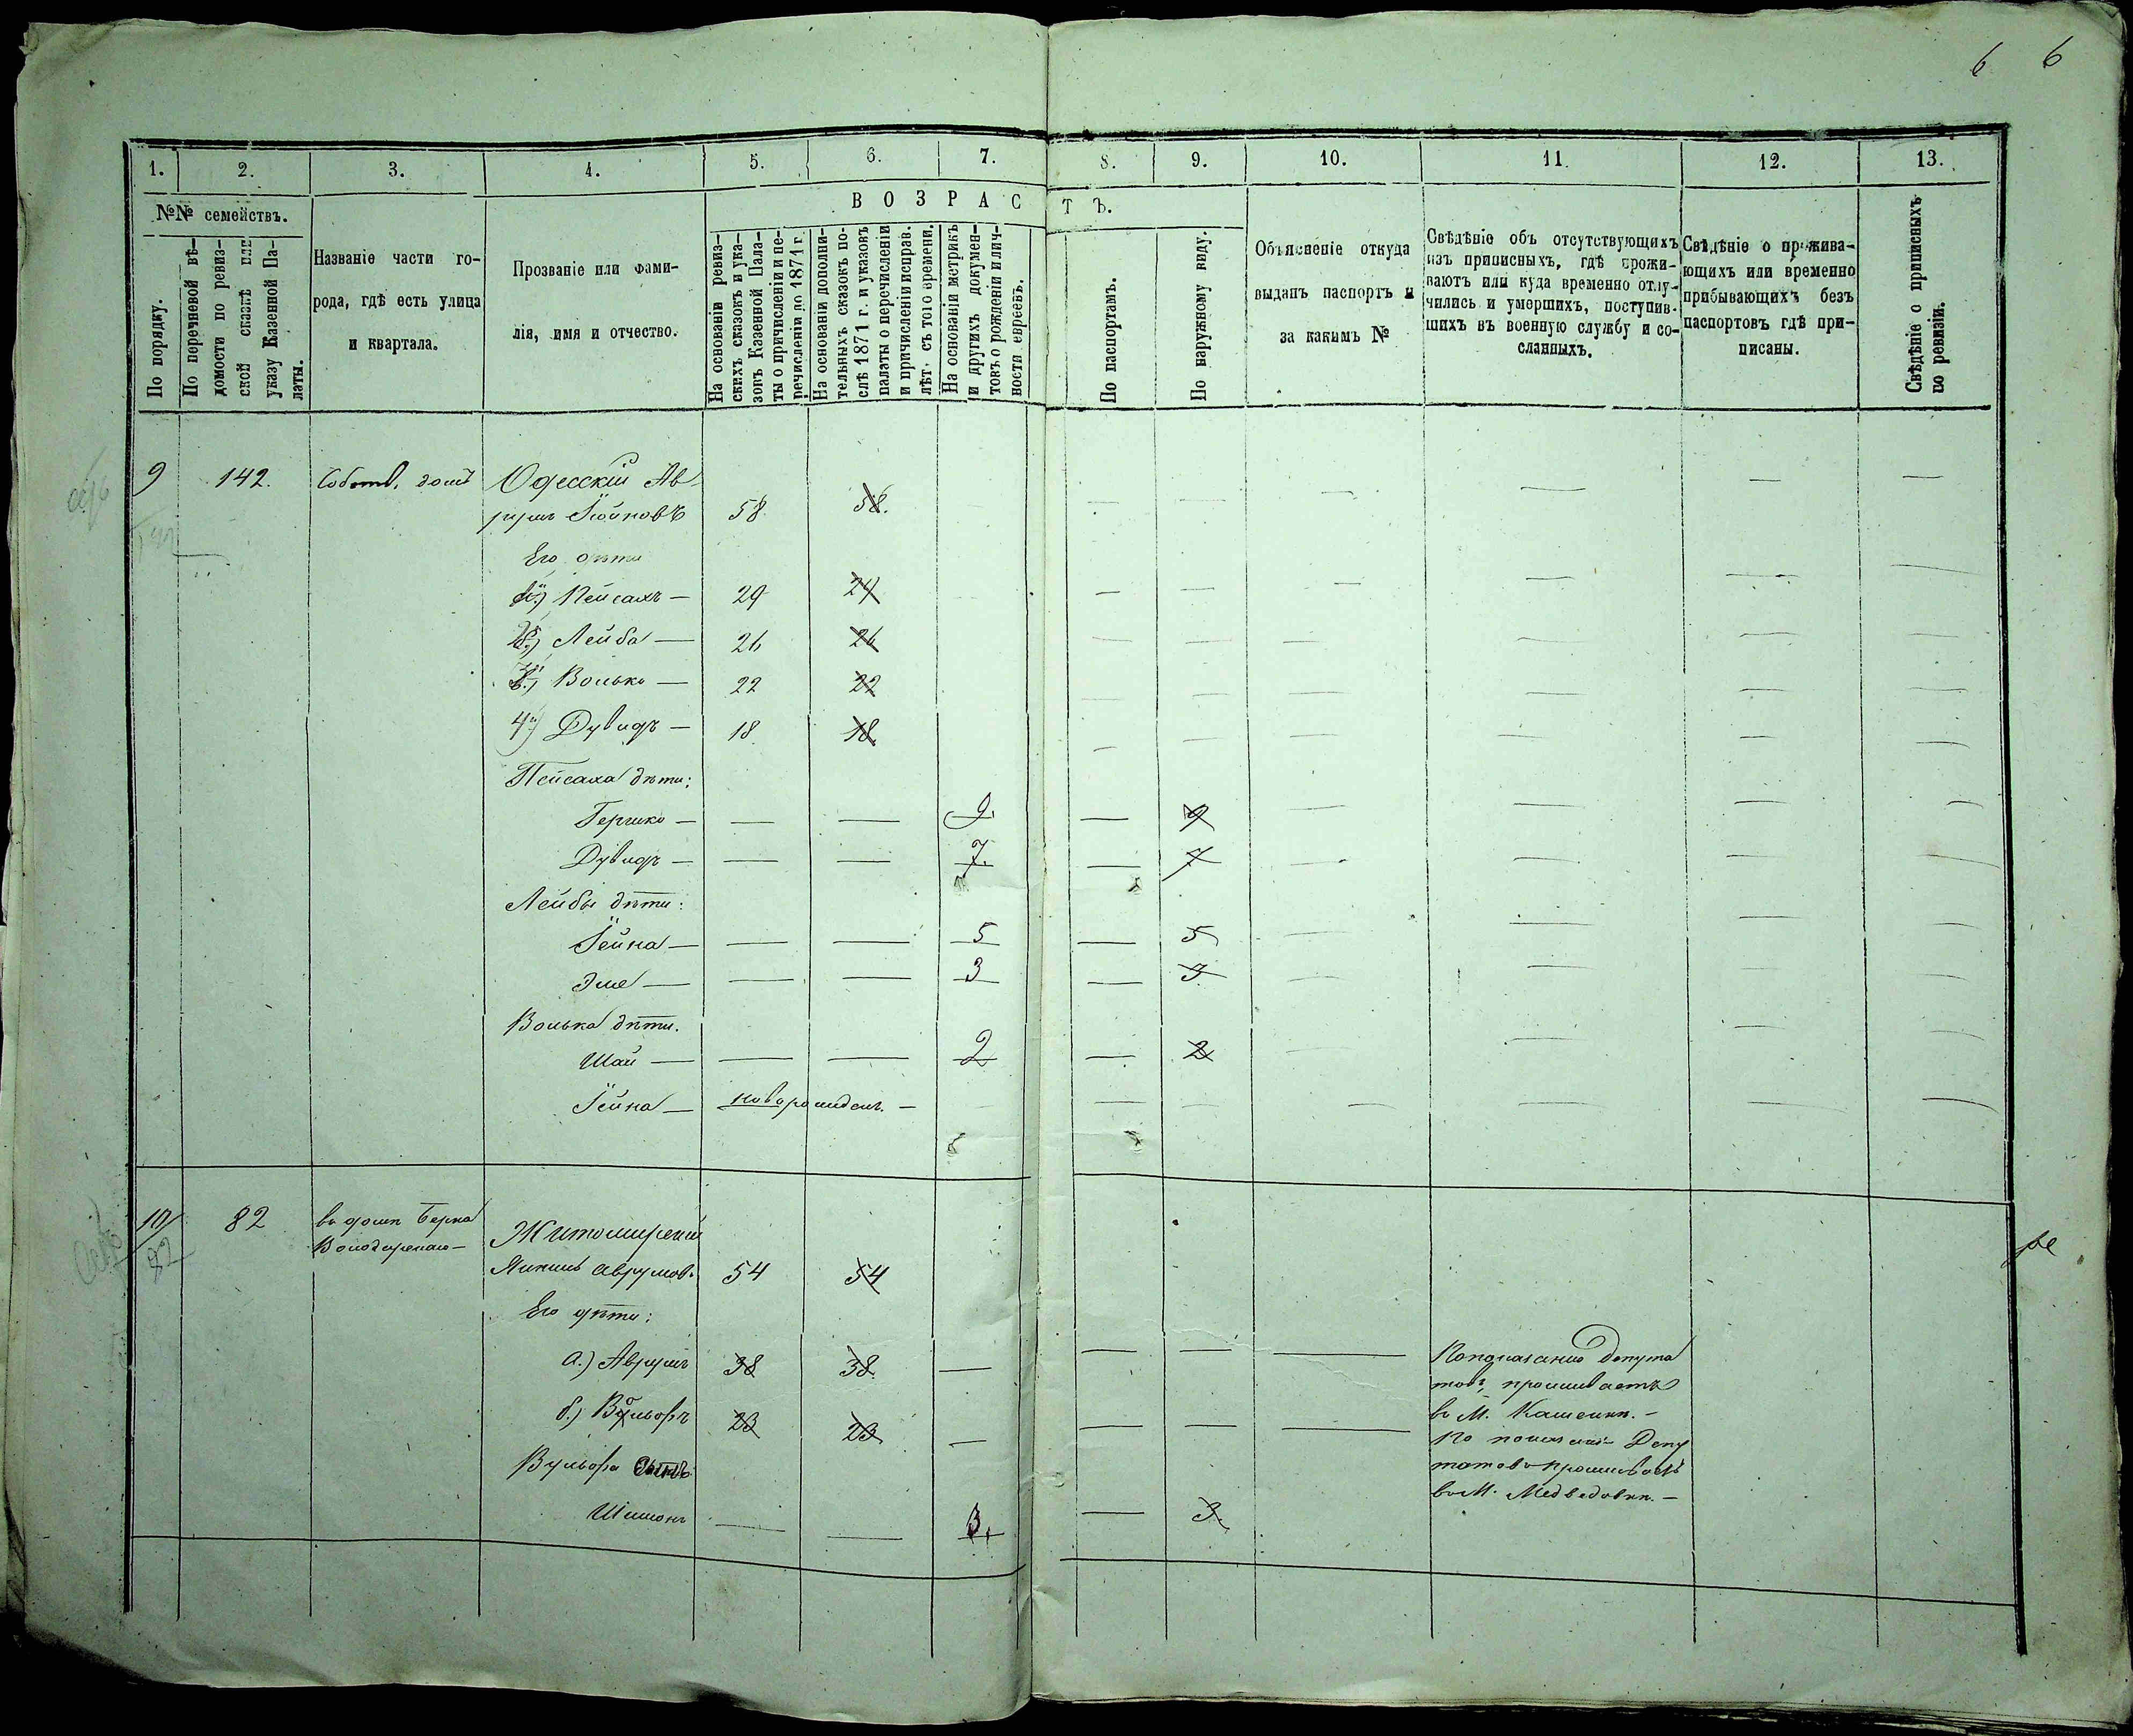 6 6
1. 2. 3. 4. 5. 6. 7. 8. 9. 10. 11. 12. 13.
№№ семействъ.
ВОЗРАСТЪ.
По порядку.
По перечневой вѣ-
домости по ревиз-
ской сказкѣ или
указу Казенной Па-
латы.
Названіе части го-
рода, гдѣ есть улица
и квартала.
Прозваніе или фами-
лія, имя и отчество.
На основаніи ревиз-
скихъ сказокъ и ука-
зовъ Казенной Пала-
ты о причисленіи и пе-
речисленіи по 1871 г.
На основаніи дополни-
тельныхъ сказокъ по-
слѣ 1871 г. и указовъ
палаты о перечисленіи
и причисленіи исправ.
лѣт. съ того времени.
На основаніи метрикъ
и другихъ докумен-
товъ о рожденіи и лич-
ности евреевъ.
По паспортамъ.
По наружному виду.
Объясненіе откуда
выданъ паспортъ и
за какимъ №
Свѣдѣніе объ отсутствующихъ
изъ приписныхъ, гдѣ прожи-
ваютъ или куда временно отлу-
чились и умершихъ, поступив-
шихъ въ военную службу и со-
сланныхъ.
Свѣдѣніе о прожива-
ющихъ или временно
прибывающихъ безъ
паспортовъ гдѣ при-
писаны.
Свѣдѣніе о приписныхъ
по ревизіи.
9 142. Собств. домъ Одесскій Ав-
румъ Іойновъ 58 58.
Его дѣти
1й) Пейсахъ — 29 29
2й) Лейба — 26 26
3й) Волько — 22 22
4й) Дувидъ — 18 18.
Пейсаха дѣти:
Гершко — — — 9. — 9
Дувидъ — — — 7. — 7
Лейбы дѣти:
Іойна — — — 5 — 5
Эле — — — 3 — 3
Волька дѣти.
Шая — — — 2 — 2
Іойна — новорожден. —
10 82 въ домѣ Берка Житомирскій
82 Володарскаго — Янкель Аврумов. 54 54
Его дѣти:
а.) Аврумъ 38 38. — — — — По показанію депута
товъ, проживаетъ
въ М. Каменкѣ. —
б.) Вольфъ 23 23 — — — — По показані Депу
татовъ проживаетъ
въ М. Медведовкѣ. —
Вульфа сынъ
Шимонъ — — 3. — 3